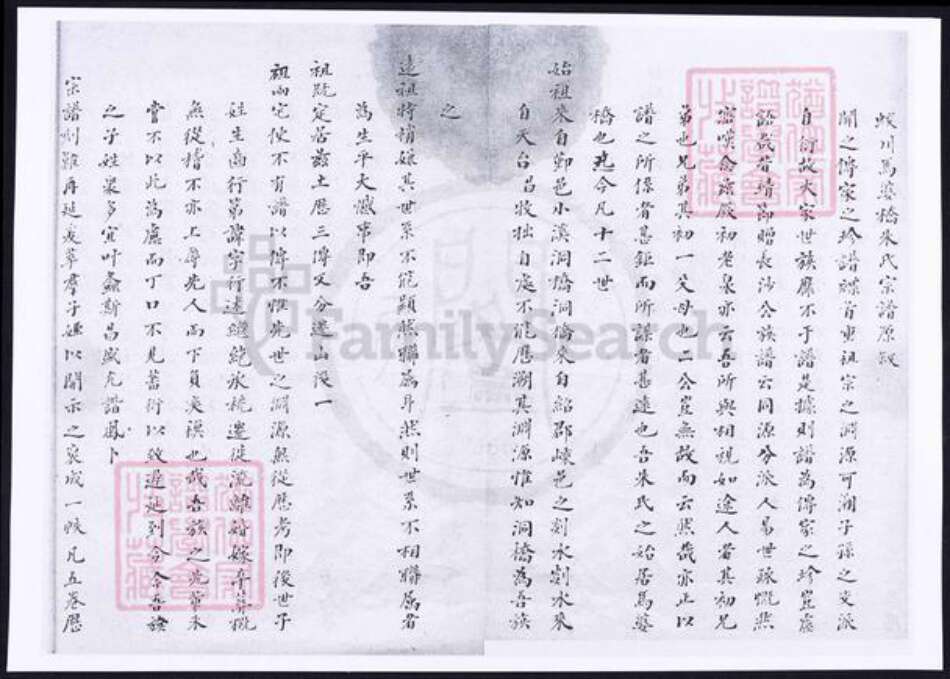 蛟川馬婆橋朱氏宗譜原叙
聞之傳家之珍譜牒首重祖宗之淵源可溯子孫之支派
自衍故大家世族靡不于譜是據則譜為傳家之珍豈虛
語哉昔靖節贈長沙公族譜云同源分派人易世疎慨然
寤嘆念茲厥初老泉亦云吾所與相視如途人者其初兄
弟也兄弟其初一父母也二公豈無故而云然哉亦止以
譜之所係者甚鉅而所謀者甚遠也吾朱氏之始居馬婆
橋也迄今凡十二世
始祖來自鄞邑小溪洞橋洞橋來自紹郡嵊邑之剡水剡水來
自天台呂牧拙自處不能歷溯其淵源惟知洞橋為吾族
之
遠祖特稍嫌其世系不能顯然聯属耳然則世系不相聯属者
為生平大憾事即吾
祖既定居茲土歷三傳又分遷山後一
祖兩宅使不有譜以傳不惟先世之淵源無從歷考即後世子
姓生齒行第諱字行述繼絕承祧遷徙流離婚嫁
無從稽不亦上辱先人而下負奕禩也哉吾族之先輩未
嘗不以此為慮而丁口不見蕃衍以致遲延到今今吾族
之子姓眾多宜叶螽斯昌盛允諧鳳卜
宗譜刊難再延爰率群子姪以開示之裒成一帙凡五卷歷
FamilySearch